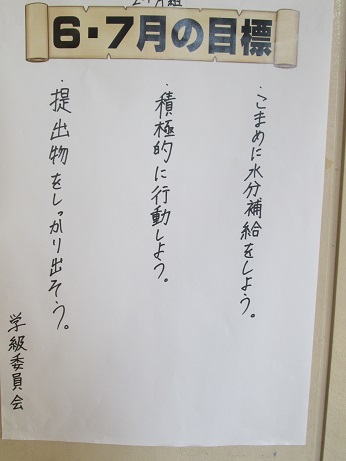 6・7月の目標
・こまめに水分補給をしよう。
・積極的に行動しよう。
・提出物をしっかり出そう。
学級委員会